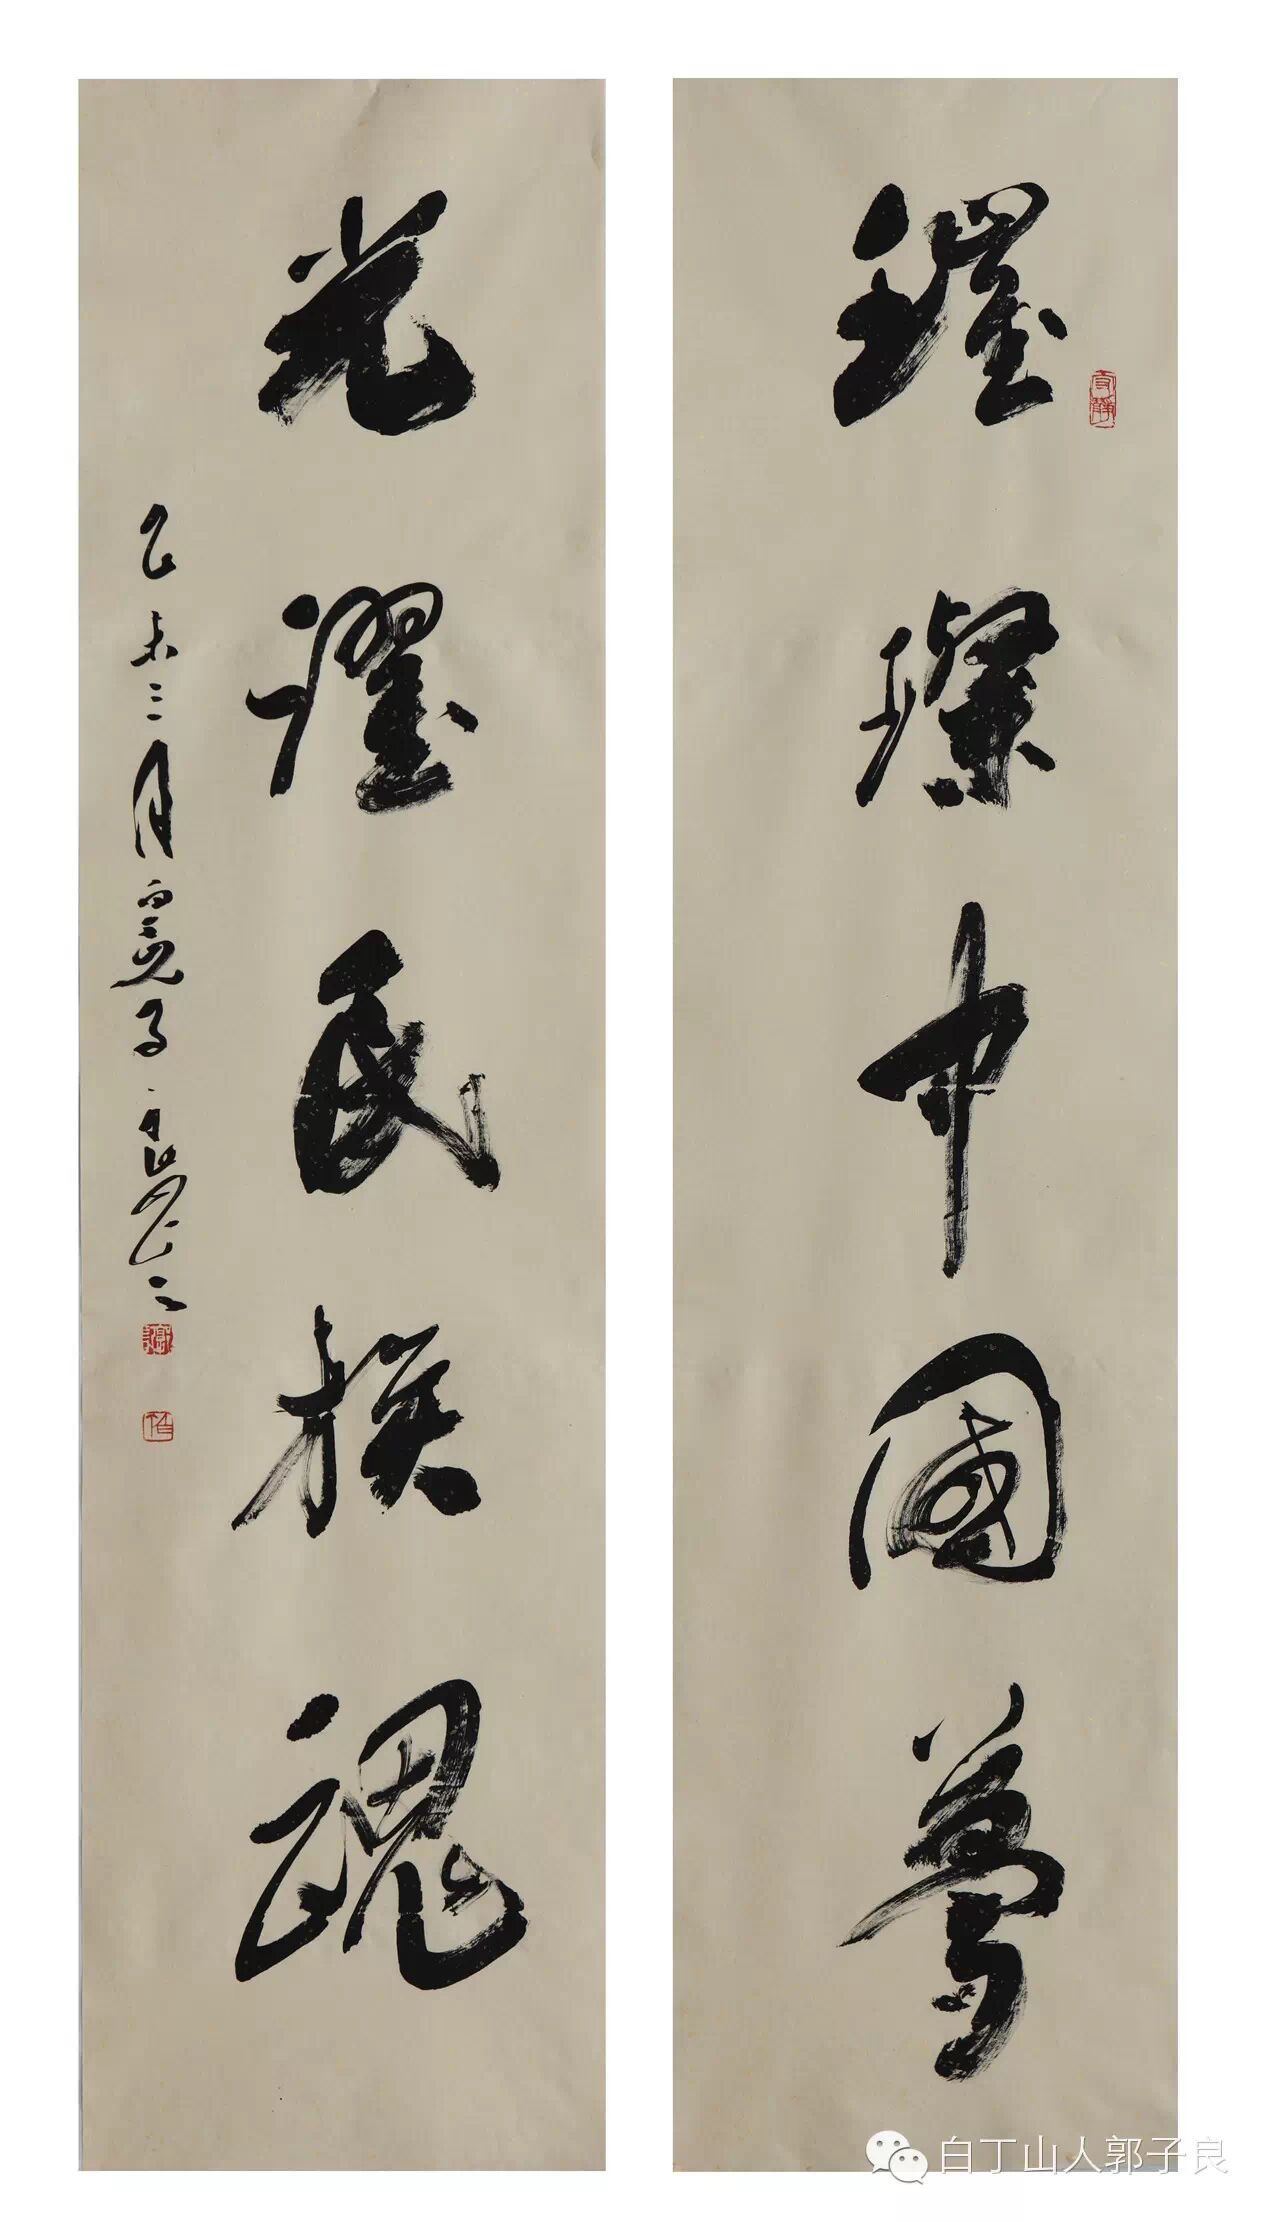 璀璨中國夢
光耀民族魂
乙未三月
白丁山人郭子良